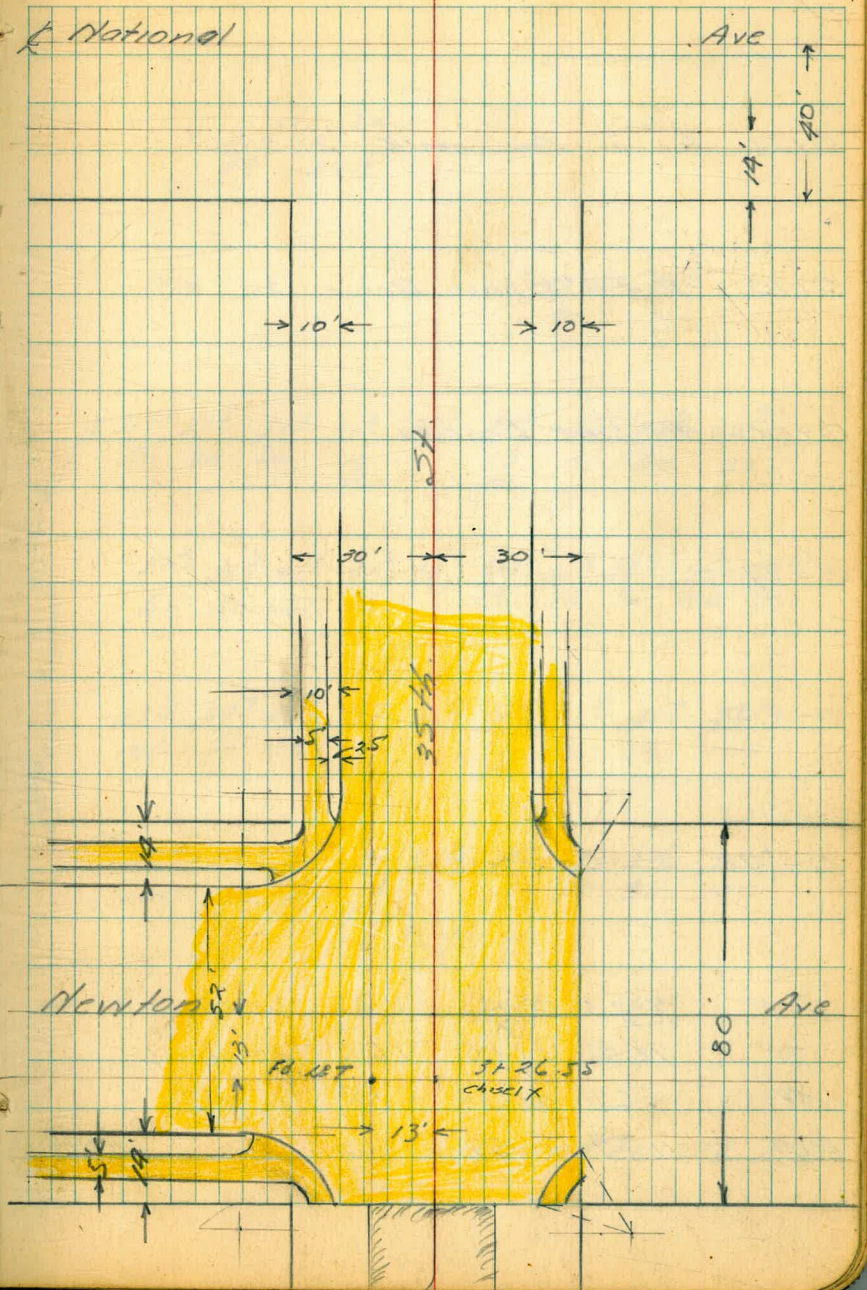 ℄ National Ave
40'
14'
10' 10'
St.
30' 30'
10'
35th
5' 2.5
14'
52'
Newton Ave
13'
80'
Fd L&T St 26.55
chisel x
13'
5' 14'